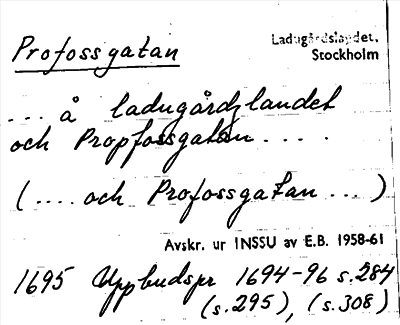 Profossgatan
Ladugårdslandet.
Stockholm
... å ladugårdzlandet
och Propfossgatan ....
(.... och Profossgatan ...)
Avskr. ur INSSU av E.B. 1958-61
1695 Uppbudspr 1694-96 s.284
(s.295), (s.308)